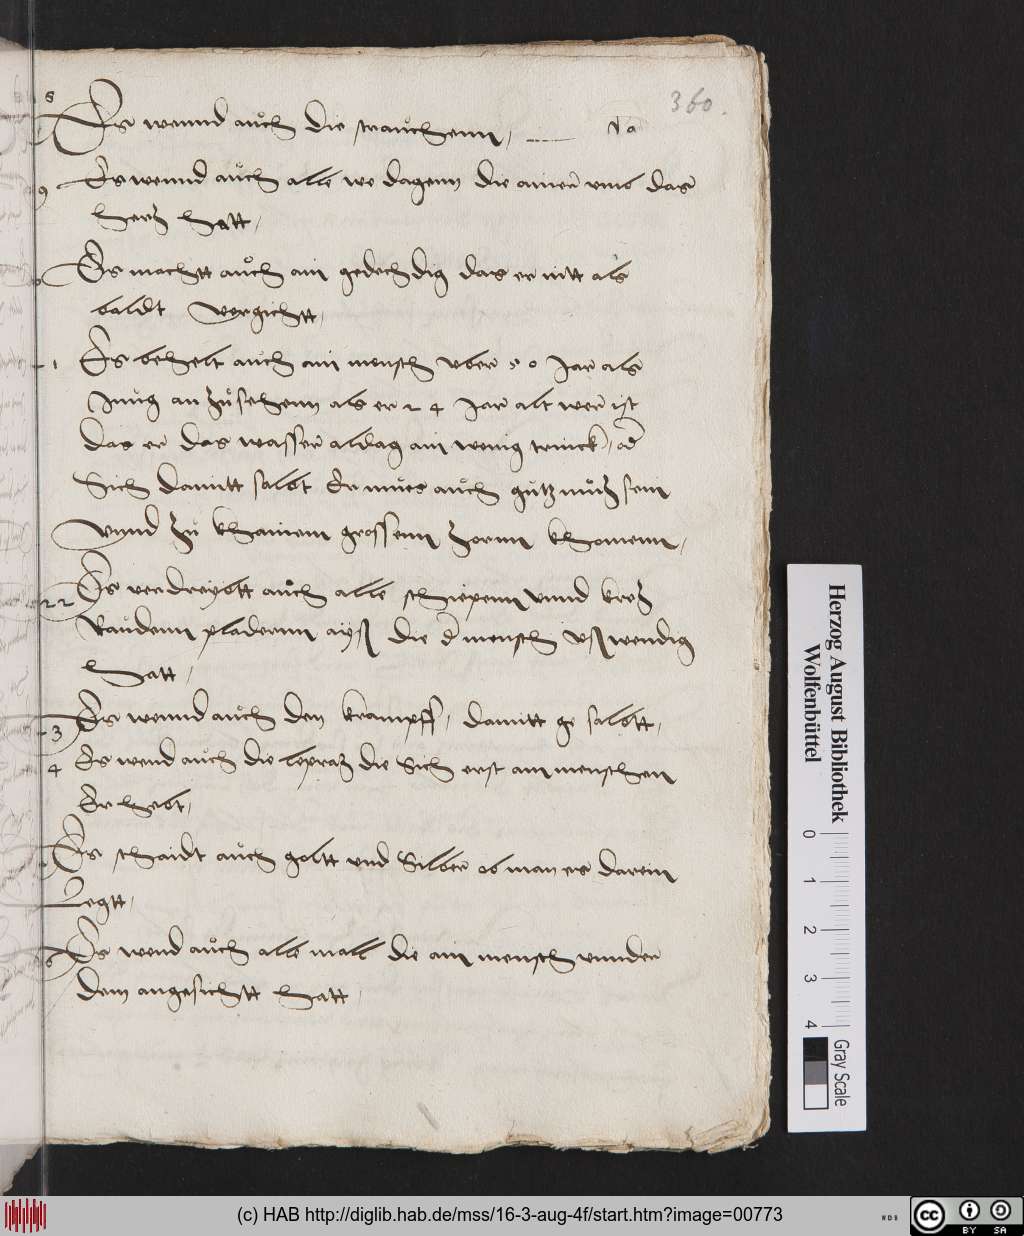 360.
8 Es wennd auch die strauchenn, Na
9 Es wennd auch alle we dagenn die ainer umb das
hertz hatt,
Es machtt auch ain gedechdig das er nitt als
baldt vergichtt,
Es behelt auch ain mensch uber 50 Jar als
Jung an zusehenn als er 24 Jar alt wer ist
das er das wasser aldag ain wenig trinck, od
Sich damitt salbt Er mues auch sein
vnnd zu khainem grossenn zornn khomenn,
Es verdreybtt auch alle schiepenn vnnd kretz
Raudenn pladernn ays die d mensch uswendig
hatt,
3 Es wennd auch den krampff, damitt ge salbtt,
4 Es wend auch die lepratz die Sich erst am menschen
Er hebt,
Es schaidt auch goltt und Silber ob man es darein
Legtt,
6 Es wend auch alle mall die ain mensch vnnder
dem angesichtt hatt,
Herzog August Bibliothek
Wolfenbüttel
0 1 2 3 4
Gray Scale
(c) HAB http://diglib.hab.de/mss/16-3-aug-4f/start.htm?image=00773
WDB
cc BY SA